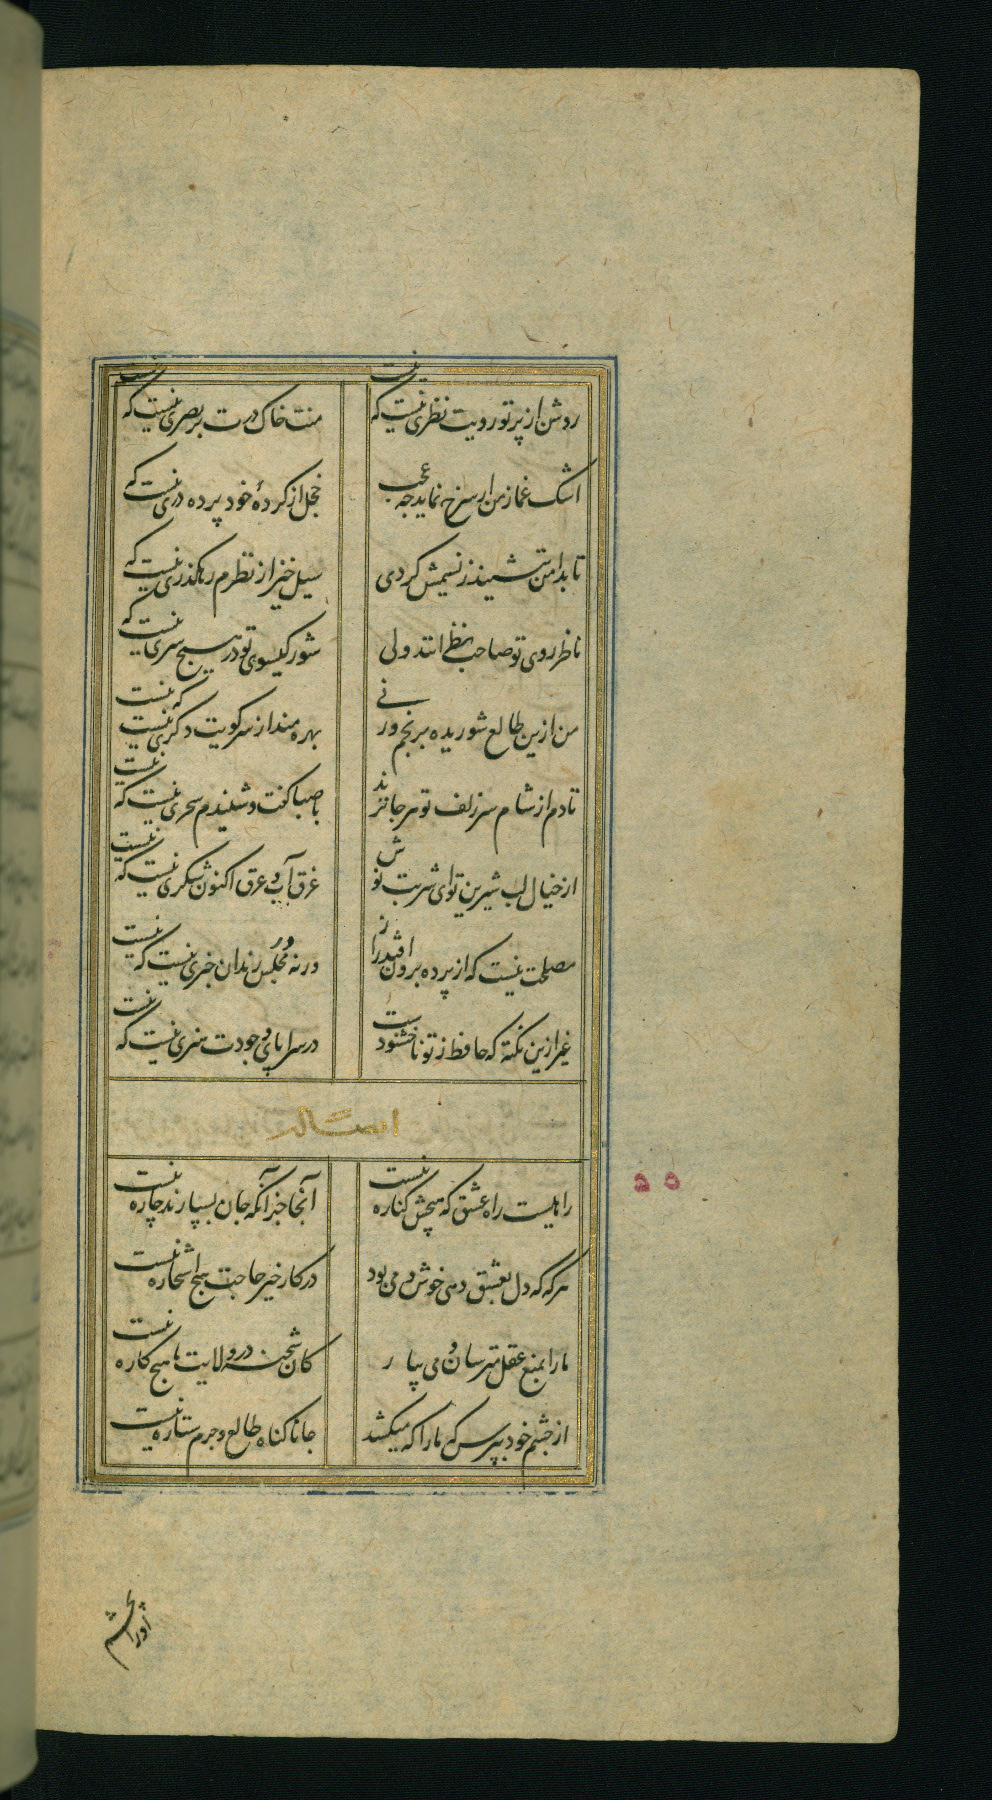 روشن از پرتو رویت نظری نیست که نیست
منت خاک درت بر بصری نیست که نیست
اشک غماز من ار سرخ نماید چه عجب
خجل از کردهٔ خود پرده دری نیست که
تا بدامن ننشیند ز نسیمش کردی
سیل خیز از نظرم رهکذری نیست که
ناظر روی تو صاحب نظرانند ولی
شور کیسوی تو در هیچ سری نیست که
من ازین طالع شوریده برنجم ور نی
بهره مند از سر کویت دکری نیست که نیست
تا دم از شام سر زلف تو هر جا نزنند
با صبا کفت و شنیدم سحری نیست که نیست
از خیال لب شیرین تو ای شربت نوش
غرق آب و عرق اکنون شکری نیست که نیست
مصلحت نیست که از پرده برون افتد راز
ورنه در مجلس رندان خبری نیست که نیست
غیر ازین نکته که حافظ ز تو ناخشنودست
در سراپای وجودت هنری نیست که نیست
ایضا له
راهیست راه عشق که هیچش کناره نیست
آنجا جز آنکه جان بسپارند چاره نیست
هر که که دل بعشق دهی خوش دمی بود
در کار خیر حاجت هیچ استخاره نیست
ما را بمنع عقل مترسان و می بیار
کان شحنه در ولایت ما هیچ کاره نیست
از چشم خود بپرس که ما را که میکشد
جانا کناه طالع و جرم ستاره نیست
۵۵